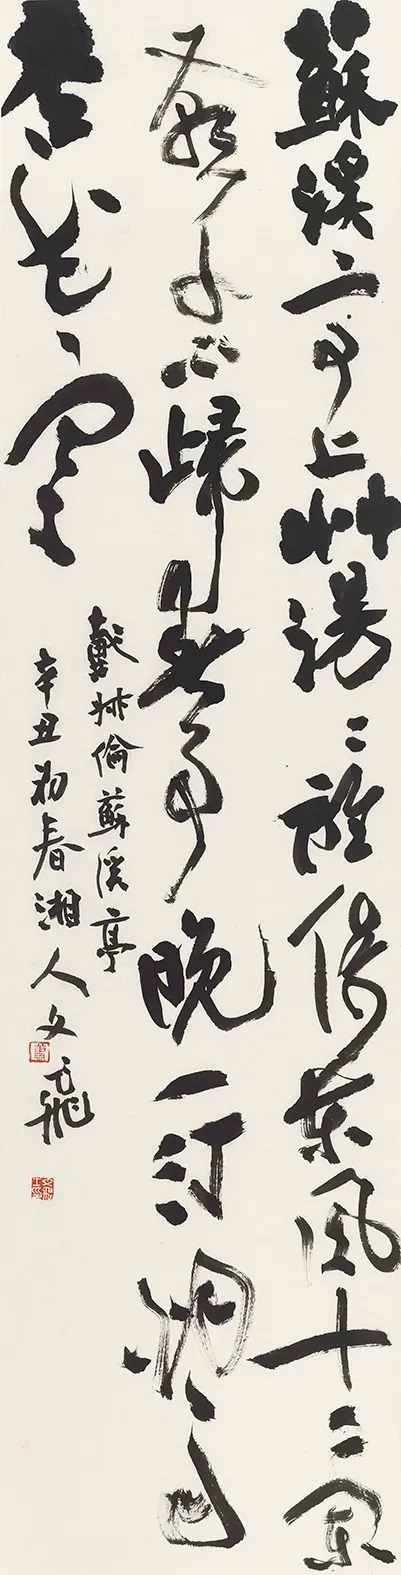 蘇溪亭上艸漫〻誰倚東風十二闌
燕子不歸春事晚一汀烟雨
杏花寒
戴叔倫蘇溪亭
辛丑初春湘人文飛